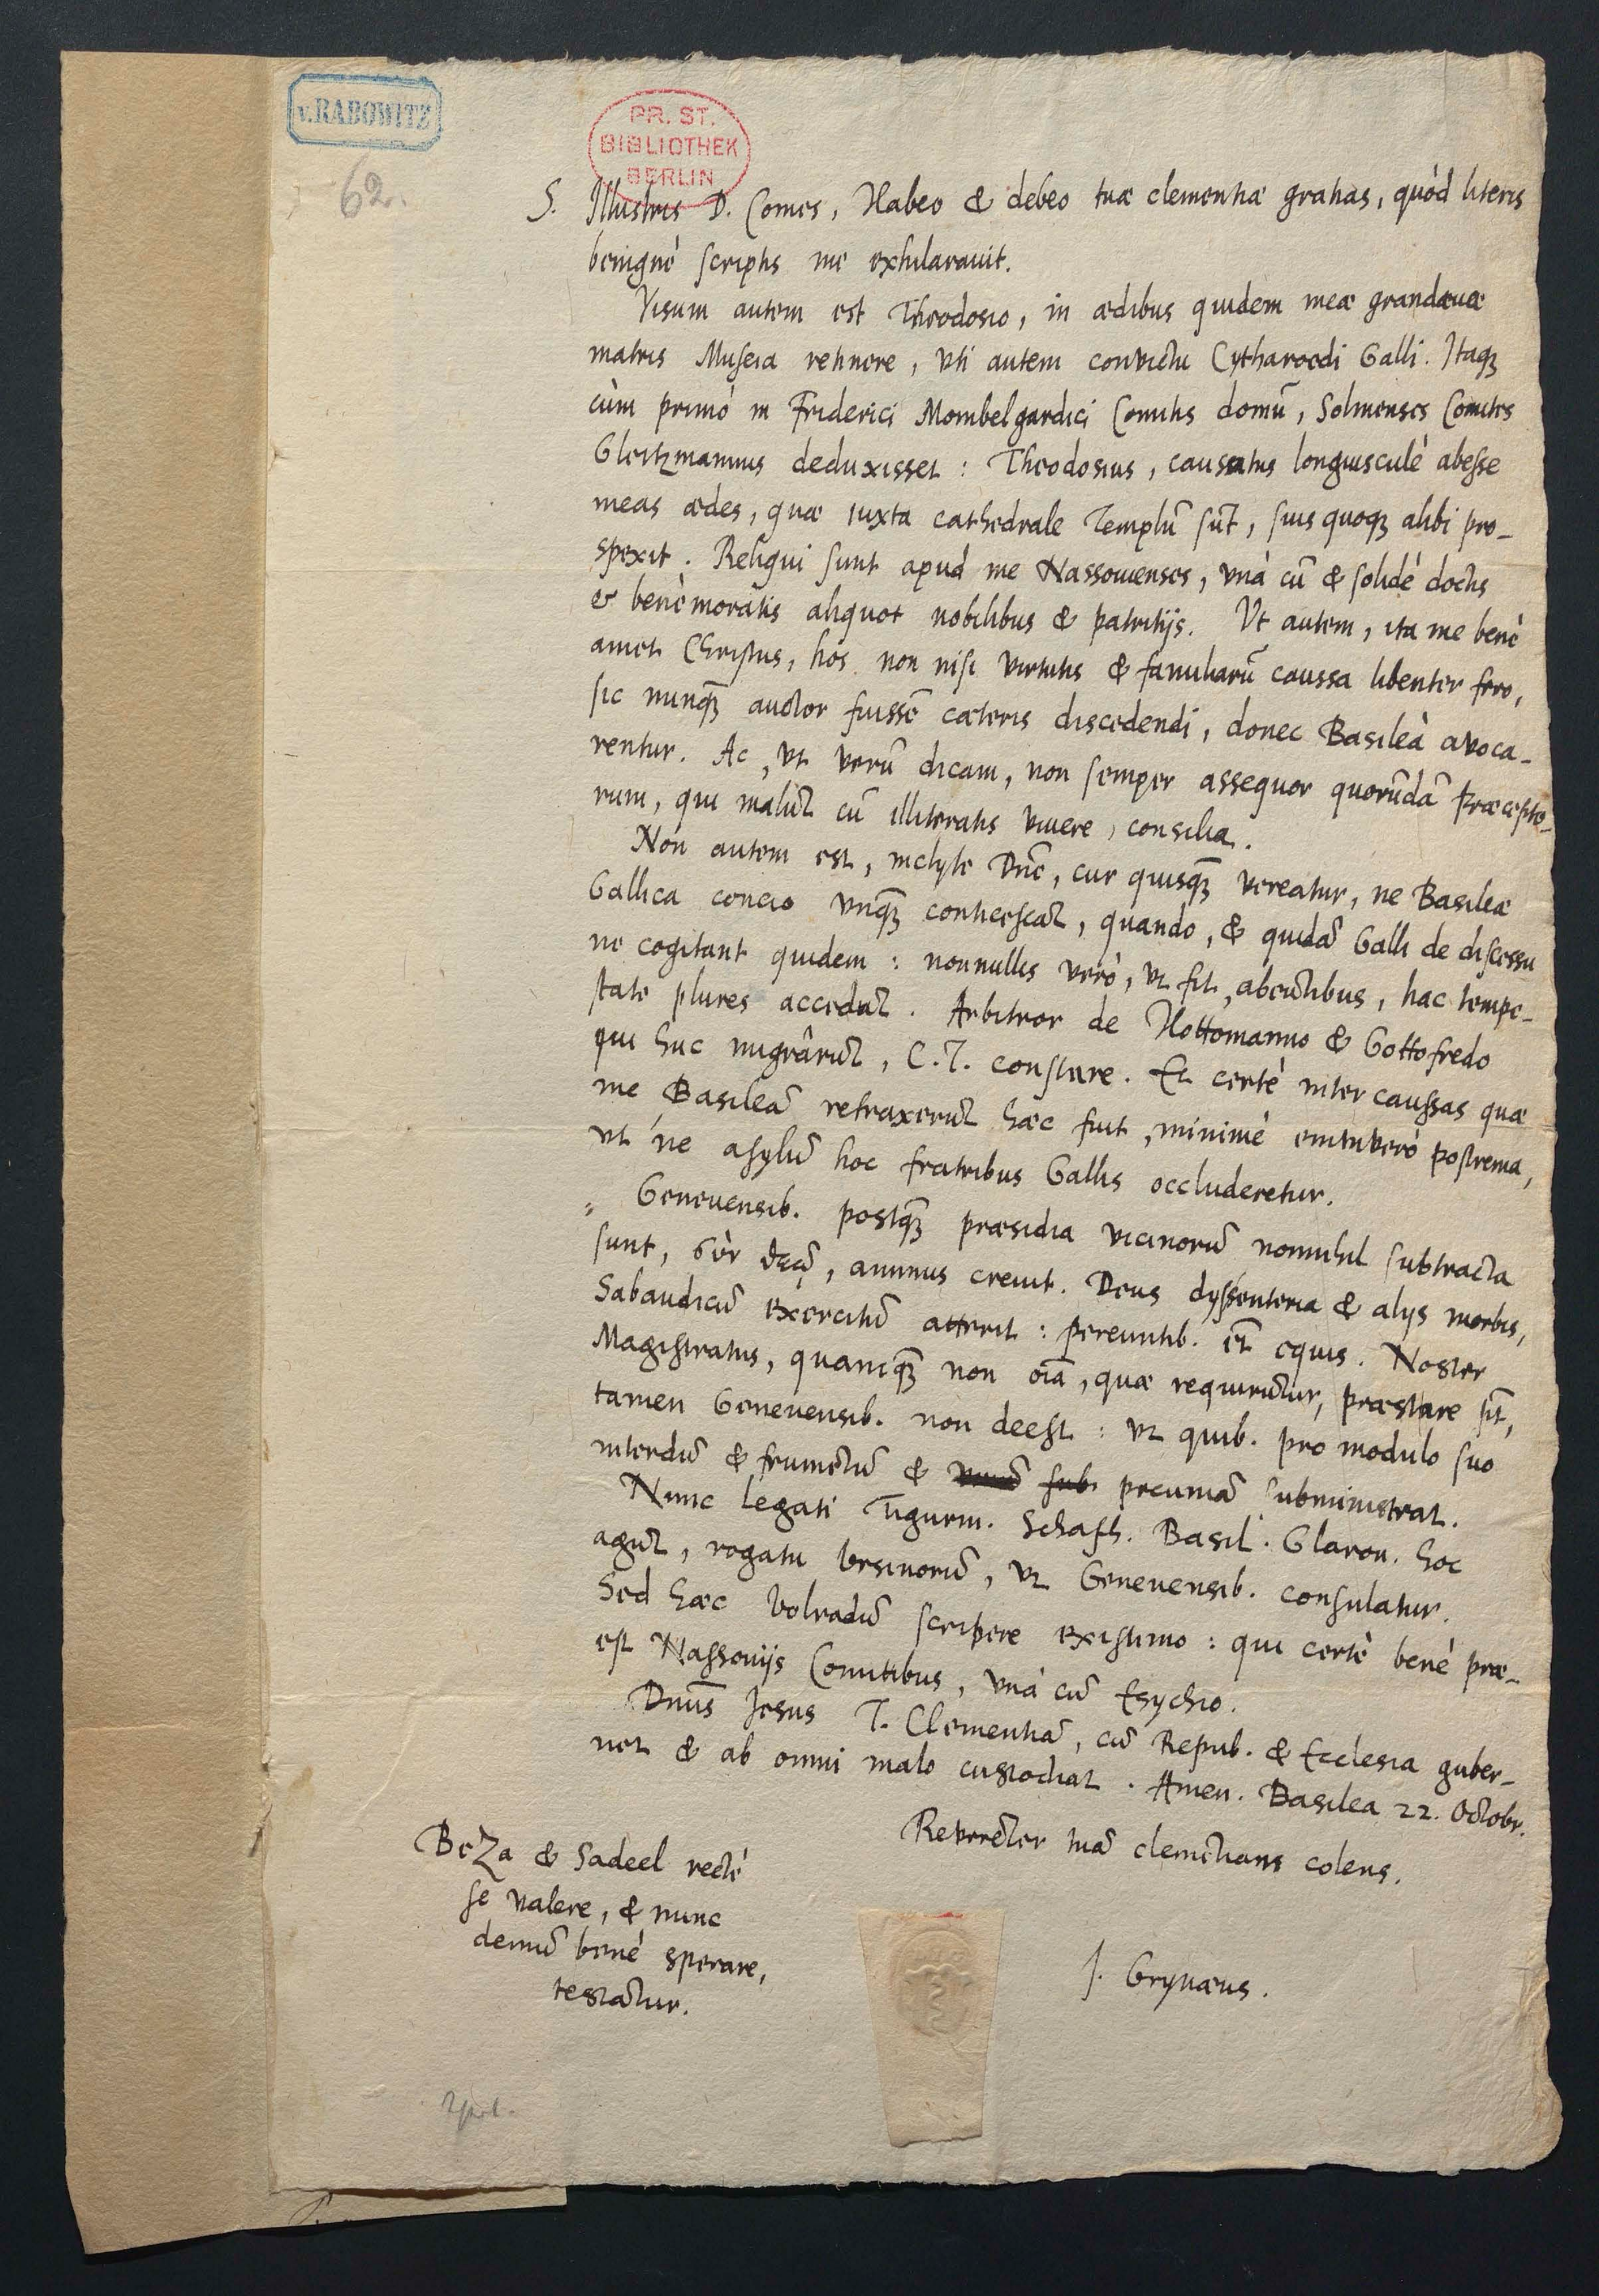 v. RADOWITZ
PR. ST.
BIBLIOTHEK
BERLIN
62.
S. Illustris D. Comes, Habeo & debeo tuæ clementiæ gratias, quòd literis
benignè scriptis me exhilarauit.
Visum autem est Theodosio, in ædibus quidem meæ grandæuæ
matris Museia retinere, vti autem conuictu Cytharoedi Galli. Itaqꝫ
cùm primò in Friderici Mombelgardici Comitis domũ, Solmenses Comites
Gleitzmannus deduxisset: Theodosius, causatus longiusculè abesse
meas ædes, quæ iuxta cathedrale Templũ sũt, suis quoqꝫ alibi pro-
spexit. Reliqui sunt apud me Nassouienses, vnà cũ & solidè doctis
& benè moratis aliquot nobilibus & patritijs. Vt autem, ita me benè
amet Christus, hos non nisi virtutis & familiarũ caussa libenter fero,
sic nunqꝫ auctor fuissẽ cæteris discedendi, donec Basileà auoca-
rentur. Ac, vt verũ dicam, non semper assequor quorũdã Præcepto-
rum, qui malũt cũ illiteratis viuere, consilia.
Non autem est, inclyte Dñe, cur quisqꝫ vereatur, ne Basileæ
Gallica concio vnqꝫ conticescat, quando, & quidã Galli de discessu
ne cogitant quidem: nonnullis verò, vt fit, abeũtibus, hac tempe-
state plures accedũt. Arbitror de Hottomanno & Gottofredo
qui huc migrârũt, C.T. constare. Et certè inter caussas quæ
me Basileã retraxerũt hæc fuit, minimè enimuerò postrema,
vt ne asylũ hoc fratribus Gallis occluderetur.
Geneuensib. postqꝫ præsidia vicinorũ nonnihil subtracta
sunt, σὺν θεῷ, animus creuit. Deus dyssenteria & alijs morbis,
Sabaudicũ exercitũ atterit: pereuntib. et̃ equis. Noster
Magistratus, quamqꝫ non oĩa, quæ requirũtur, præstare sit,
tamen Geneuensib. non deest: vt quib. pro modulo suo
interdũ & frumẽtũ & pecuniã subministrat.
Nunc legati Tigurin. Schafh. Basil. Glaron. hoc
agũt, rogatu Vrsinorũ, vt Geneuensib. consulatur.
Sed hæc Volradũ scribere existimo: qui certè benè præ-
est Nassouijs Comitibus, vnà cũ Esychio.
Dñus Iesus T. Clementiã, cũ Repub. & Ecclesia guber-
net & ab omni malo custodiat. Amen. Basilea 22. Octobr.
Reuerẽter tuã clemẽtiam colens.
J. Grynæus.
Beza & Sadeel rectè
se valere, & nunc
demũ benè sperare,
testãtur.